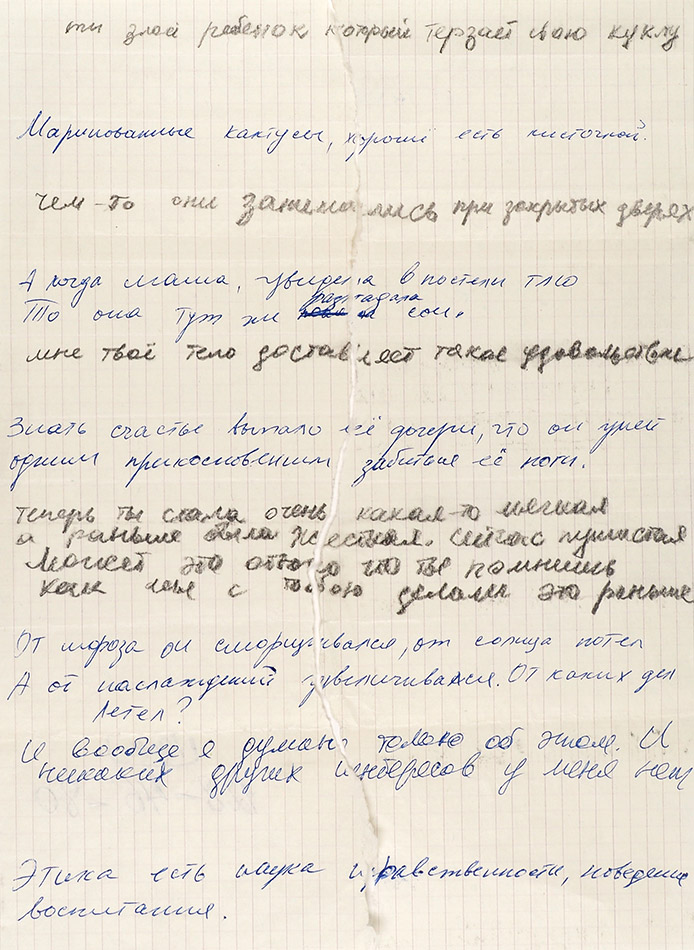 ты злой ребенок который терзает свою куклу
Маринованные кактусы, хороши есть кисточкой.
чем-то они занимались при закрытых дверях
А когда мама, увидела в постели тлю
То она тут же разгадала сон.
мне твоё тело доставляет такое удовольствие
Знать счастье выпало её дочери, что он умел
одним прикосновеним забитые её ноги.
теперь ты стала очень какая-то мягкая
и раньше была жесткая. сейчас пушистая
Может это оттого что ты помнишь
как мы с тобою делали это раньше
От мороза он сморщивался, от солнца потел
А от наслаждений увеличивался. От каких дел
летел?
И вообще я думаю только об этом. И
никаких других интересов у меня нет
Этика есть наука нравственности, поведение
воспитания.